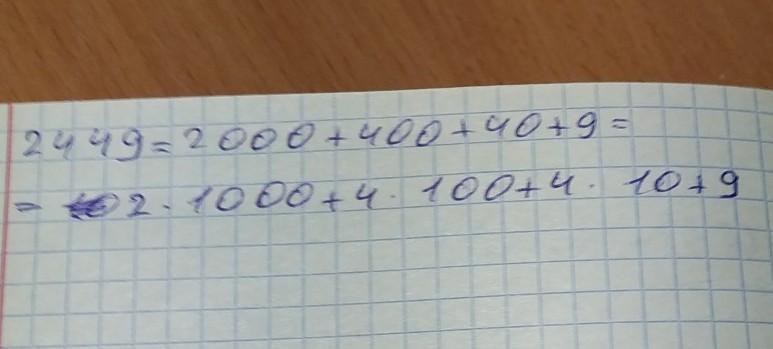 2449=2000+400+40+9=
= 2·1000+4·100+4·10+9